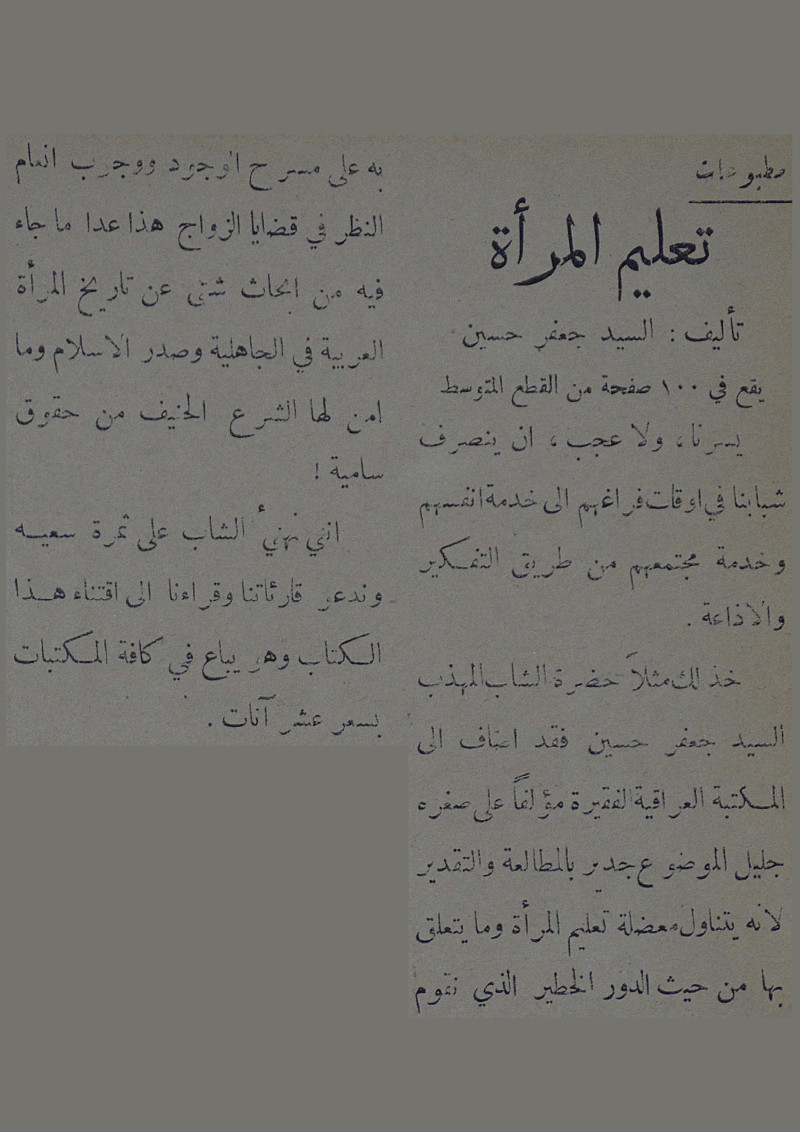 مطبوعات
تعليم المرأة
تأليف : السيد جعفر حسين
يقع في ١٠٠ صفحة من القطع المتوسط
يسرنا ، ولا عجب ، ان ينصرف
شبابنا في اوقات فراغهم الى خدمة انفسهم
وخدمة مجتمعهم من طريق التفكير
والاذاعة .
خذ لك مثلاً حضرة الشاب المهذب
السيد جعفر حسين فقد اضاف الى
المكتبة العراقية الفقيرة مؤلفاً على صغره
جليل الموضوع جدير بالمطالعة والتقدير
لانه يتناول معضلة تعليم المرأة وما يتعلق
بها من حيث الدور الخطير الذي تقوم
به على مسرح الوجود ووجوب انعام
النظر في قضايا الزواج هذا عدا ما جاء
فيه من ابحاث شتى عن تاريخ المرأة
العربية في الجاهلية وصدر الاسلام وما
امن لها الشرع الحنيف من حقوق
سامية !
انني نهنيُ الشاب على ثمرة سعيه
وندعو قارئاتنا وقراءنا الى اقتناء هذا
الكتاب وهو يباع في كافة المكتبات
بسعر عشر آنات .